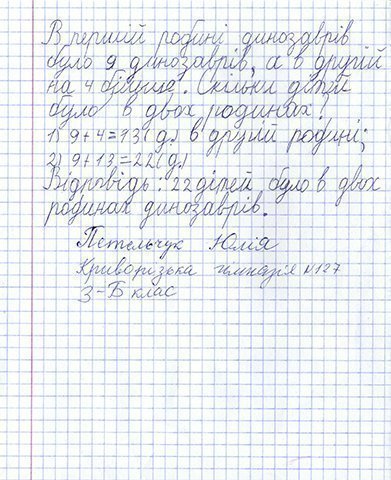 В першій родині динозаврів
було 9 динозаврів, а в другій
на 4 більше. Скільки дітей
було в двох родинах?
1) 9+4=13(д.) в другій родині;
2) 9+13=22(д.)
Відповідь: 22 дітей було в двох
родинах динозаврів.
Петельчук Юлія
Криворізька гімназія №127
3-Б клас